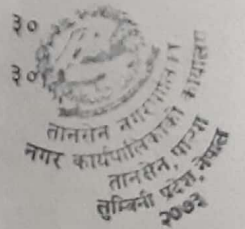 ३०
३०
तानसेन नगरपालिका
नगर कार्यपालिकाको कार्यालय
तानसेन, पाल्पा
लुम्बिनी प्रदेश, नेपाल
२०७३